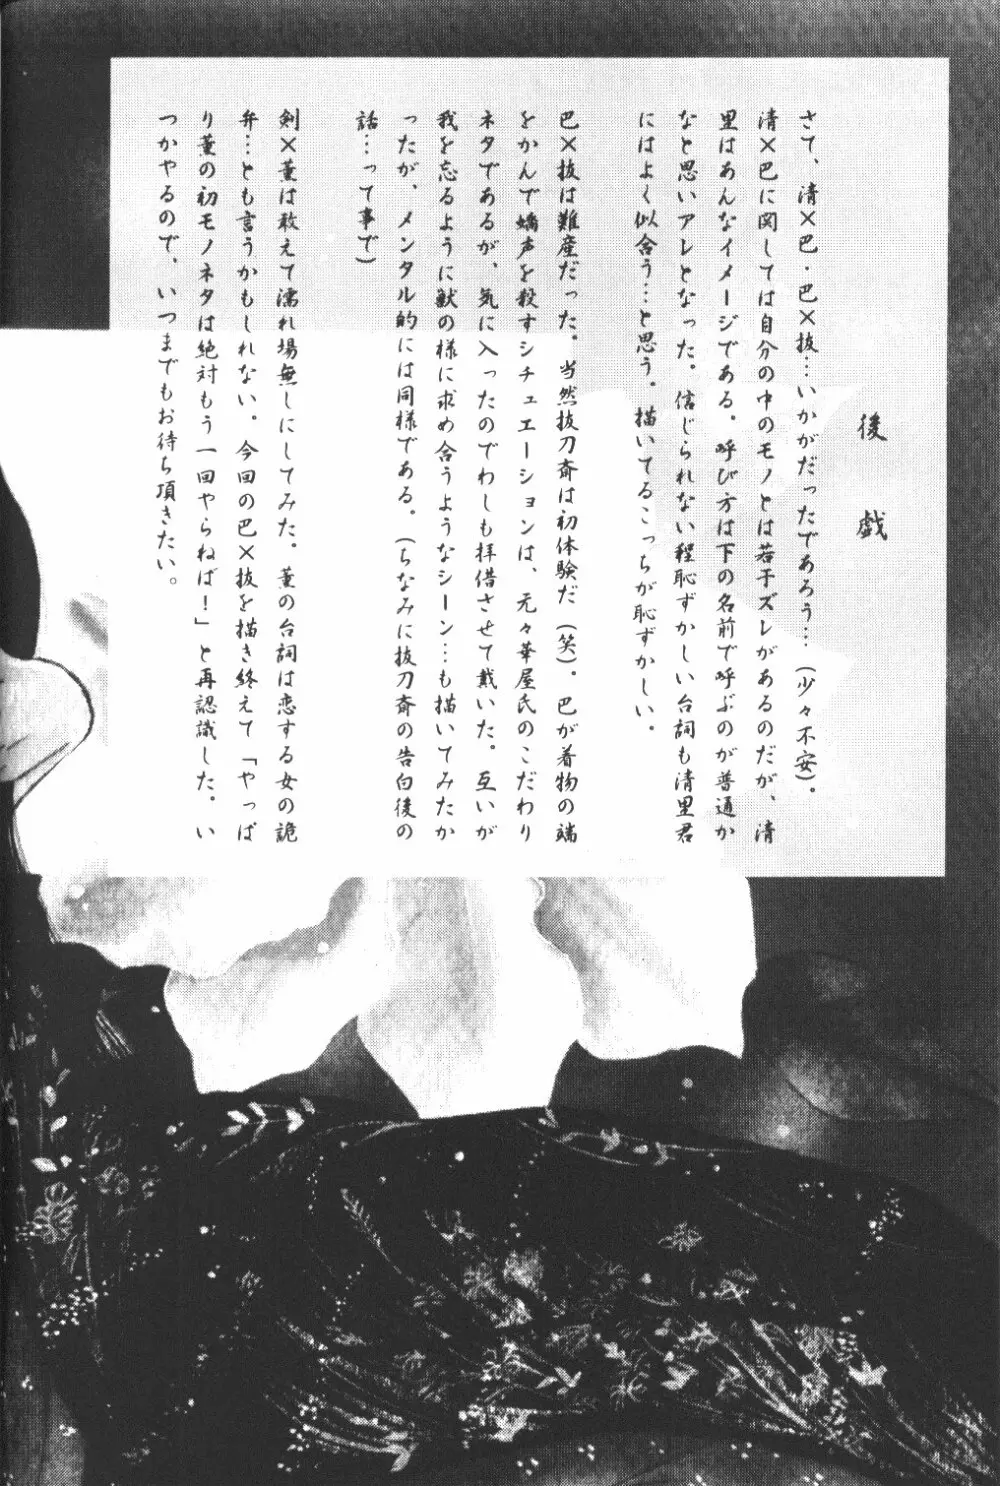 後戯
さて、清×巴・巴×抜…いかがだったであろう…(少々不安)。
清×巴に関しては自分の中のモノとは若干ズレがあるのだが、清
里はあんなイメージである。呼び方は下の名前で呼ぶのが普通か
なと思いアレとなった。信じられない程恥ずかしい台詞も清里君
にはよく似合う…と思う。描いてるこっちが恥ずかしい。
巴×抜は難産だった。当然抜刀斎は初体験だ(笑)。巴が着物の端
をかんで嬌声を殺すシチュエーションは、元々華屋氏のこだわり
ネタであるが、気に入ったのでわしも拝借させて戴いた。互いが
我を忘るように獣の様に求め合うようなシーン…も描いてみたか
ったが、メンタル的には同様である。(ちなみに抜刀斎の告白後の
話…って事で)
剣×薫は敢えて濡れ場無しにしてみた。薫の台詞は恋する女の詭
弁…とも言うかもしれない。今回の巴×抜を描き終えて「やっぱ
り薫の初モノネタは絶対もう一回やらねば!」と再認識した。い
つかやるので、いつまでもお待ち頂きたい。